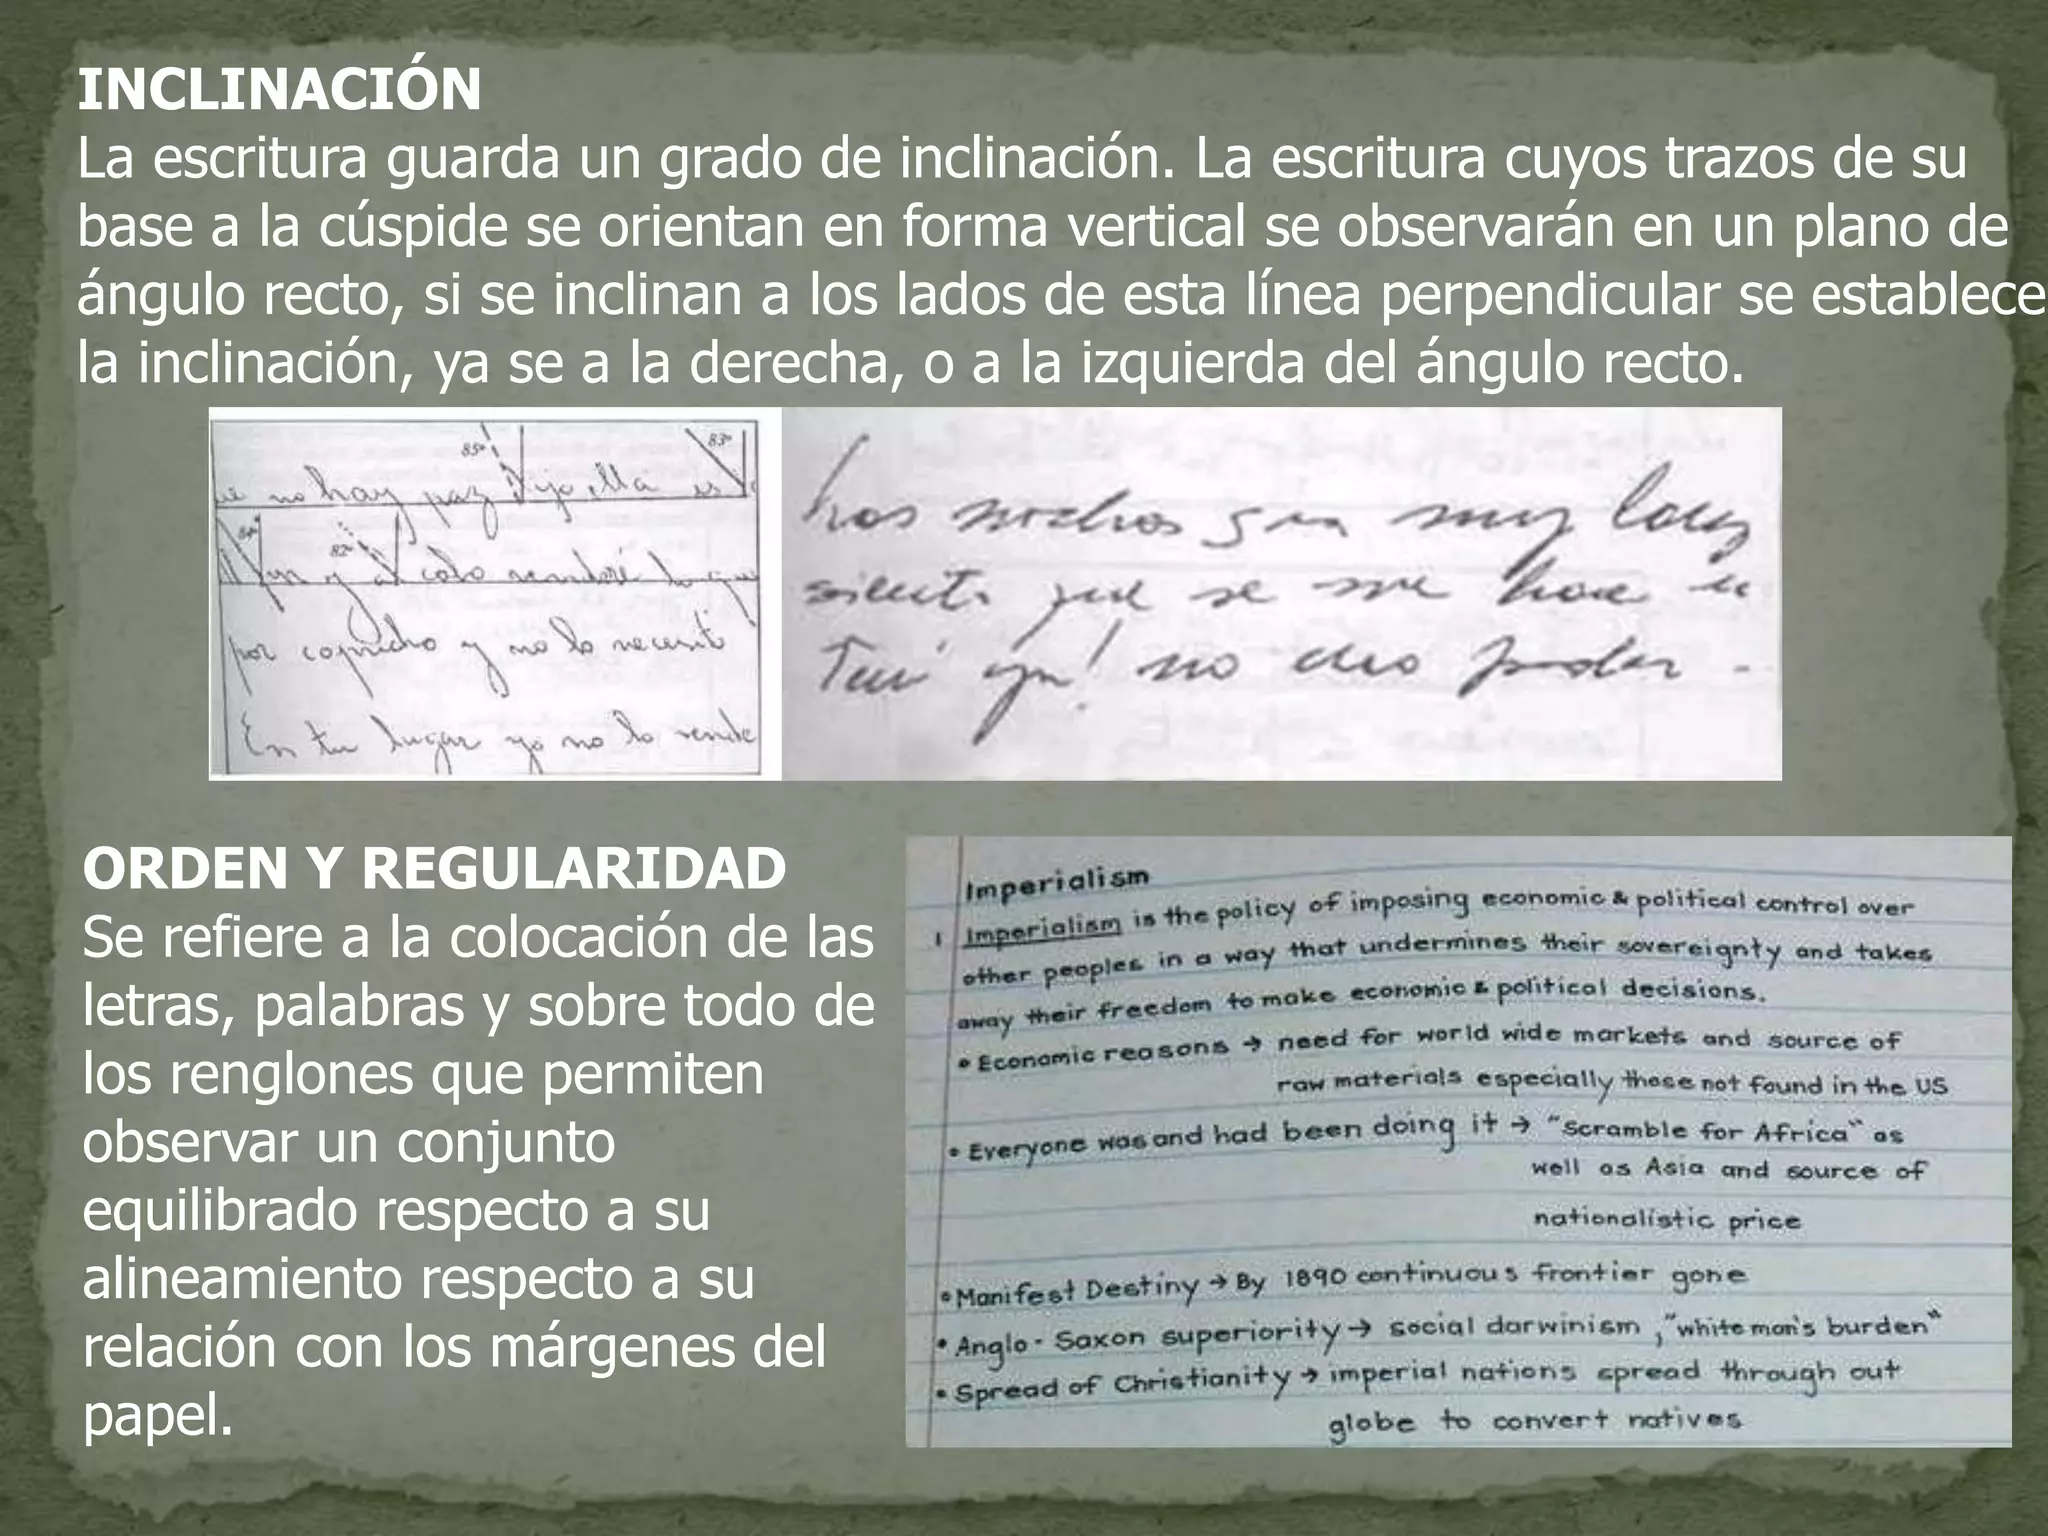 INCLINACIÓN
La escritura guarda un grado de inclinación. La escritura cuyos trazos de su
base a la cúspide se orientan en forma vertical se observarán en un plano de
ángulo recto, si se inclinan a los lados de esta línea perpendicular se establece
la inclinación, ya se a la derecha, o a la izquierda del ángulo recto.
85º 83º
no hay paz y ella es
82º
y al cabo rendiré lo que
por capricho y no lo necesit
En tu lugar yo no lo rende
las noches son muy
siento que se me hace
no creo poder.
ORDEN Y REGULARIDAD
Se refiere a la colocación de las
letras, palabras y sobre todo de
los renglones que permiten
observar un conjunto
equilibrado respecto a su
alineamiento respecto a su
relación con los márgenes del
papel.
Imperialism
1 Imperialism is the policy of imposing economic & political control over
other peoples in a way that undermines their sovereignty and takes
away their freedom to make economic & political decisions.
• Economic reasons → need for world wide markets and source of
raw materials especially those not found in the US
• Everyone was and had been doing it → "Scramble for Africa" as
well as Asia and source of
nationalistic price
• Manifest Destiny → By 1890 continuous frontier gone
• Anglo-Saxon superiority → social darwinism, "white man's burden"
• Spread of Christianity → imperial nations spread through out
globe to convert natives